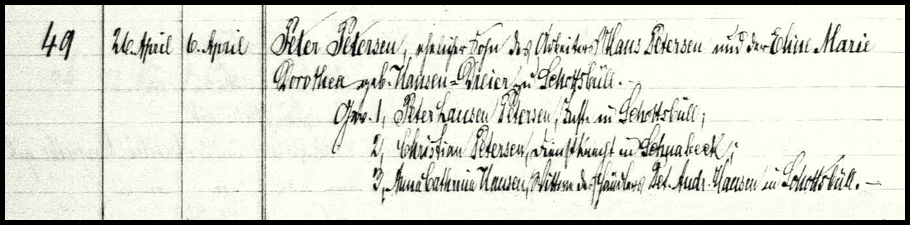 49 26. April 6. April Peter Petersen, ehelicher Sohn des Arbeiters Hans Petersen und der Eline Marie
Dorothea geb. Hansen-Dreier zu Schottsbüll. –
Gev. 1, Peter Hansen Petersen, in Schottsbüll;
2, Christian Petersen, Dienstknecht in Schnabeck;
3, Anna Cathrina Hansen, des Händlers Pet. Andr. Hansen in Schottsbüll. –